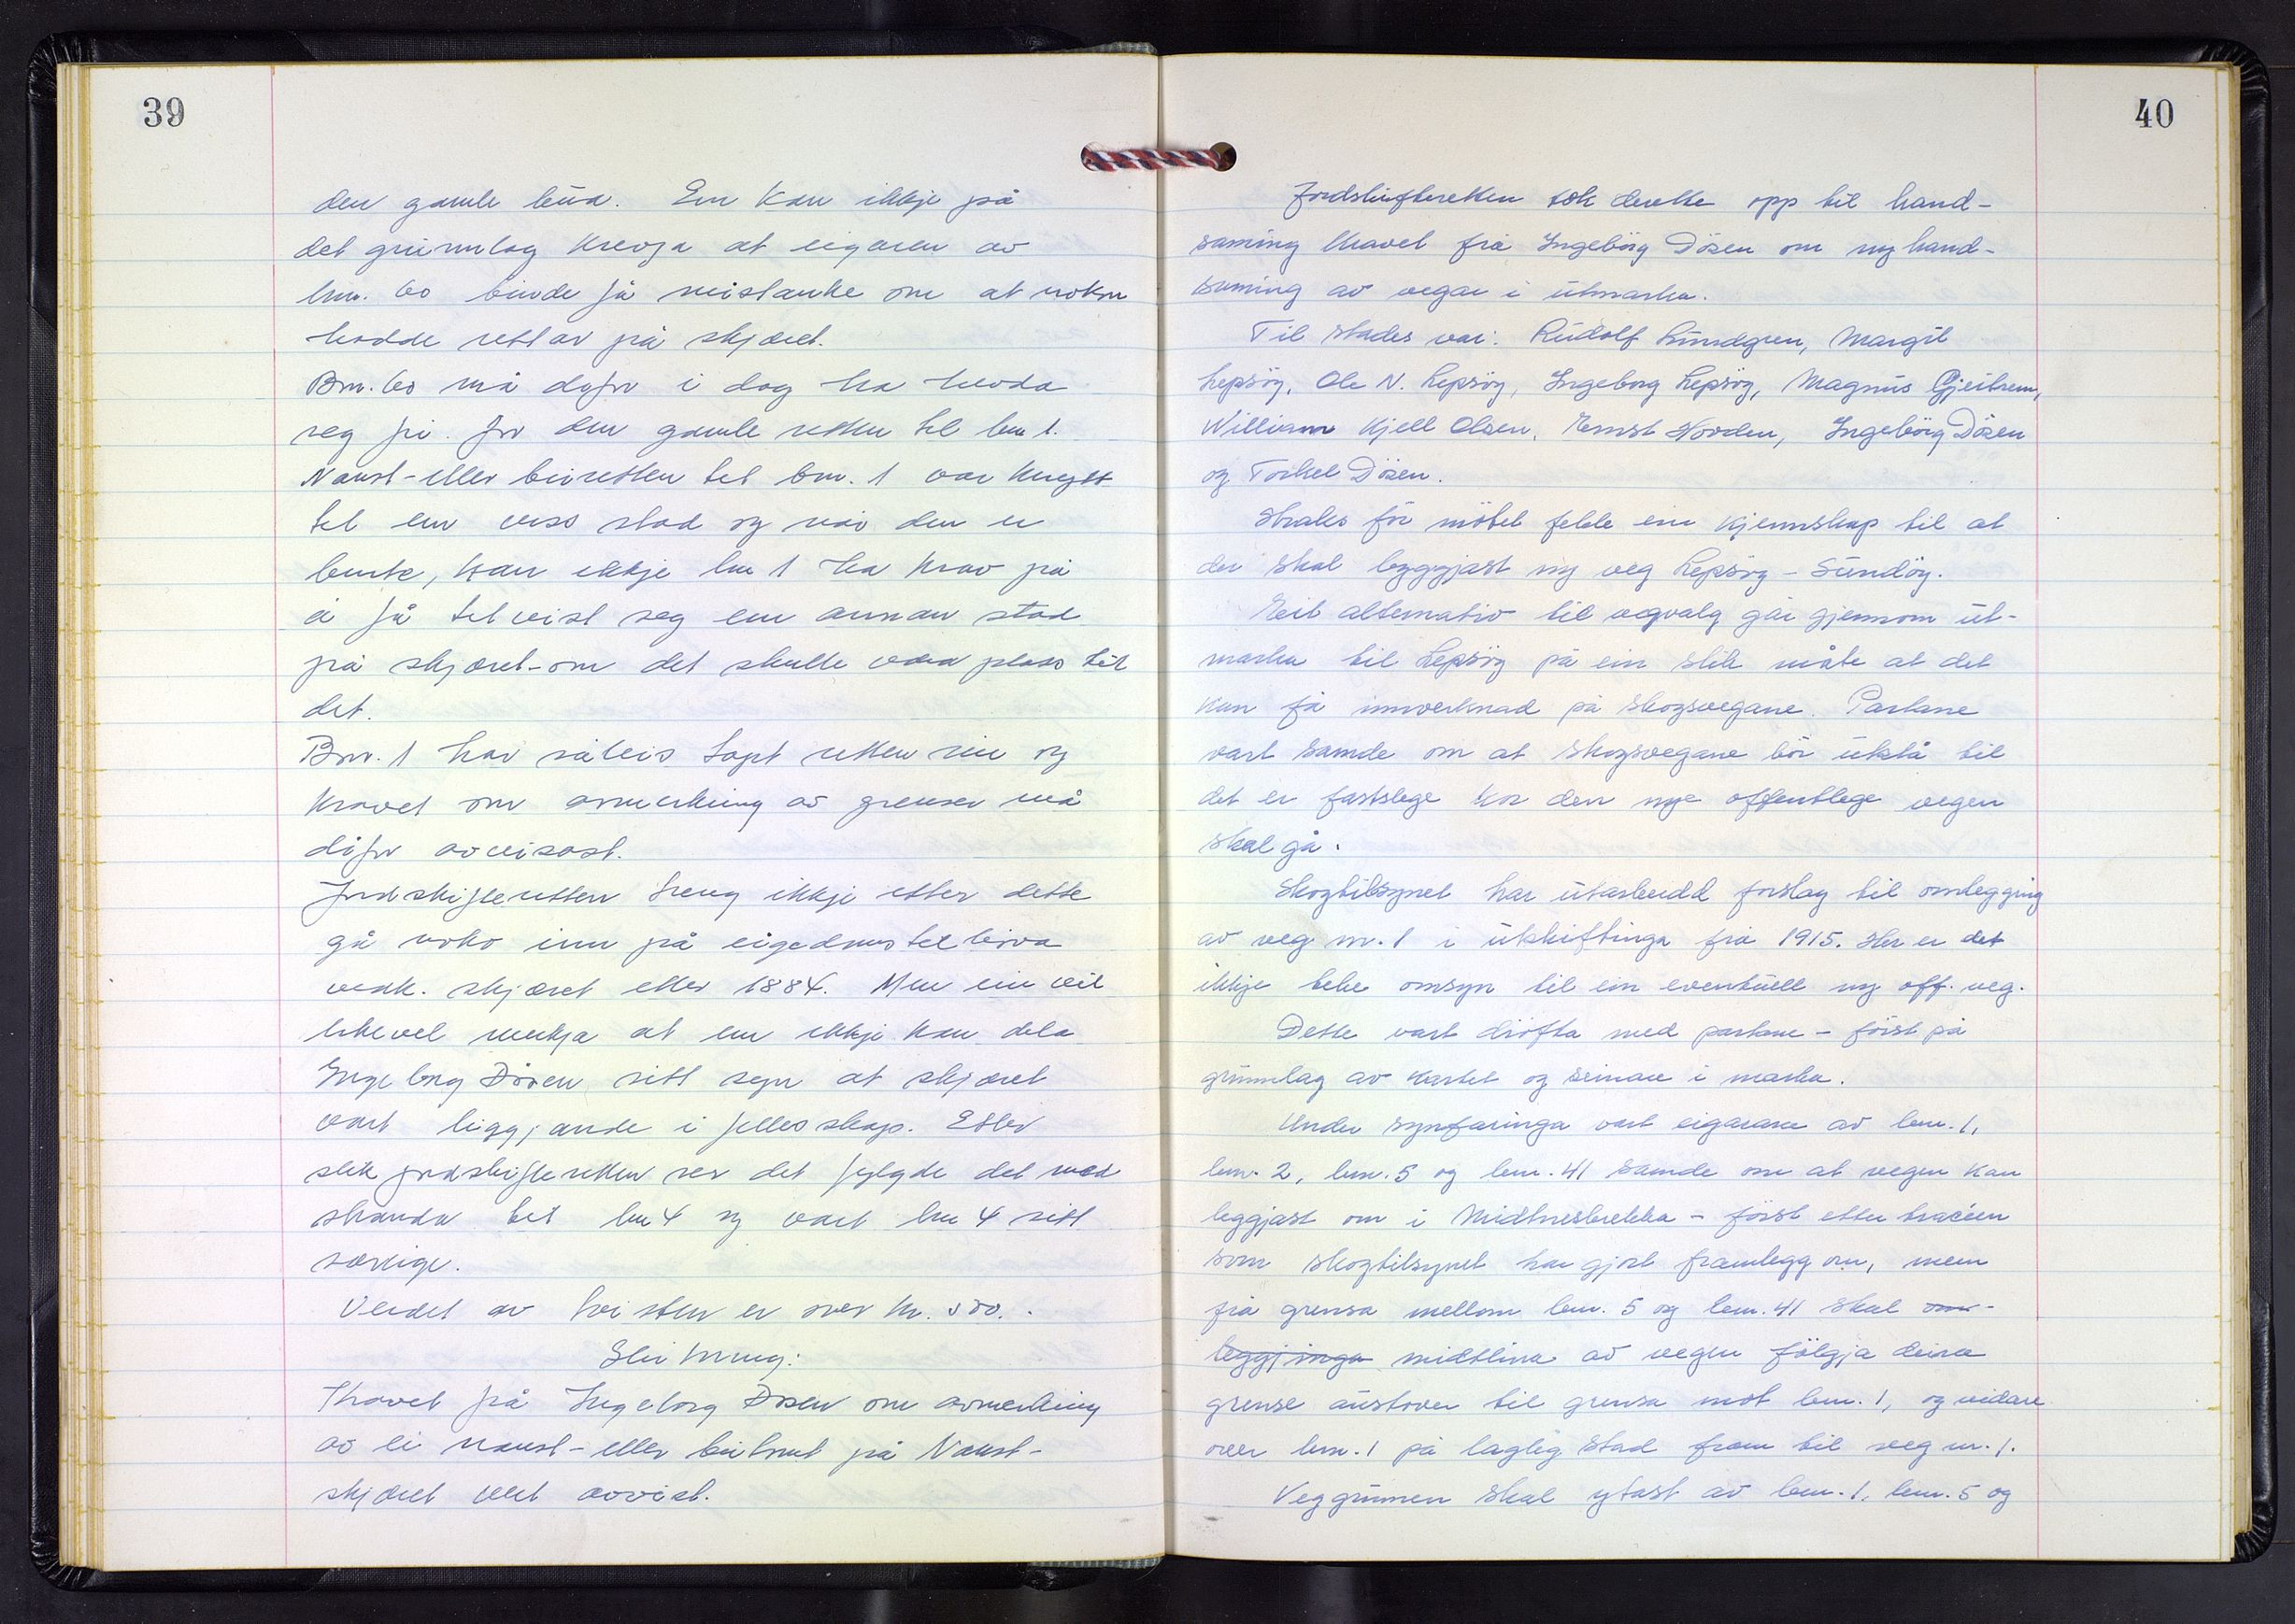 39
den gamle bua. Ein kan ikkje på
det grunnlag krevja at eigaren av
bnr. 60 burde få mistanke om at nokon
hadde rettar på skjæret.
Bnr. 60 må difor i dag ha hevda
seg fri for den gamle retten til bnr 1.
Naust- eller buretten til bnr. 1 var knytt
til ein viss stad og når den er
borte, kan ikkje bnr 1 ha krav på
å få tilvist seg ein annan stad
på skjæret - om det skulle vera plass til
det.
Bnr. 1 har såleis tapt retten sin og
kravet om avmerking av grenser må
difor avvisast.
Jordskifteretten treng ikkje etter dette
gå noko inn på eigedomstilhøva
vedk. skjæret etter 1884. Men ein vil
likevel merkja at ein ikkje kan dela
Ingeborg Døsen sitt syn at skjæret
vart liggjande i fellesskap. Etter
slik jordskifteretten ser det fylgde det med
stranda til bnr 4 og vart bnr 4 sitt
særeige.
Verdet av tvisten er over kr. 500.
Slutning:
Kravet frå Ingeborg Døsen om avmerking
av ei naust- eller butomt på Naust-
skjæret vert avvist.
40
Jordskifteretten tok deretter opp til hand-
saming kravet frå Ingebörg Dösen om ny hand-
saming av vegar i utmarka.
Til stades var: Rudolf Lundgren, Margit
Lepsöy, Ole N. Lepsöy, Ingeborg Lepsöy, Magnus Gjeitrem,
William Kjell Olsen, Ernst Norden, Ingebörg Dösen
og Torkel Dösen.
Straks för mötet fekk ein kjennskap til at
der skal byggjast ny veg Lepsöy - Sundöy.
Eit alternativ til vegvalg går gjennom ut-
marka til Lepsöy på ein slik måte at det
kan få innverknad på skogsvegane. Partane
vart samde om at skogsvegane bör utstå til
det er fastslege kor den nye offentlege vegen
skal gå.
Skogtilsynet har utarbeidd forslag til omlegging
av veg nr. 1 i utskiftinga frå 1915. Her er det
ikkje teke omsyn til ein eventuell ny off. veg.
Dette vart dröfta med partane - först på
grunnlag av kartet og seinare i marka.
Under synfaringa vart eigarane av bnr. 1,
bnr. 2, bnr. 5 og bnr. 41 samde om at vegen kan
leggjast om i Midtnesbrekka - först etter tracéen
som skogtilsynet har gjort framlegg om, men
frå grensa mellom bnr. 5 og bnr. 41 skal om-
leggjinga midtlina av vegen fölgja deira
grense austover til grensa mot bnr. 1, og vidare
over bnr. 1 på lagleg stad fram til veg nr. 1.
Veggrunnen skal ytast av bnr. 1, bnr. 5 og